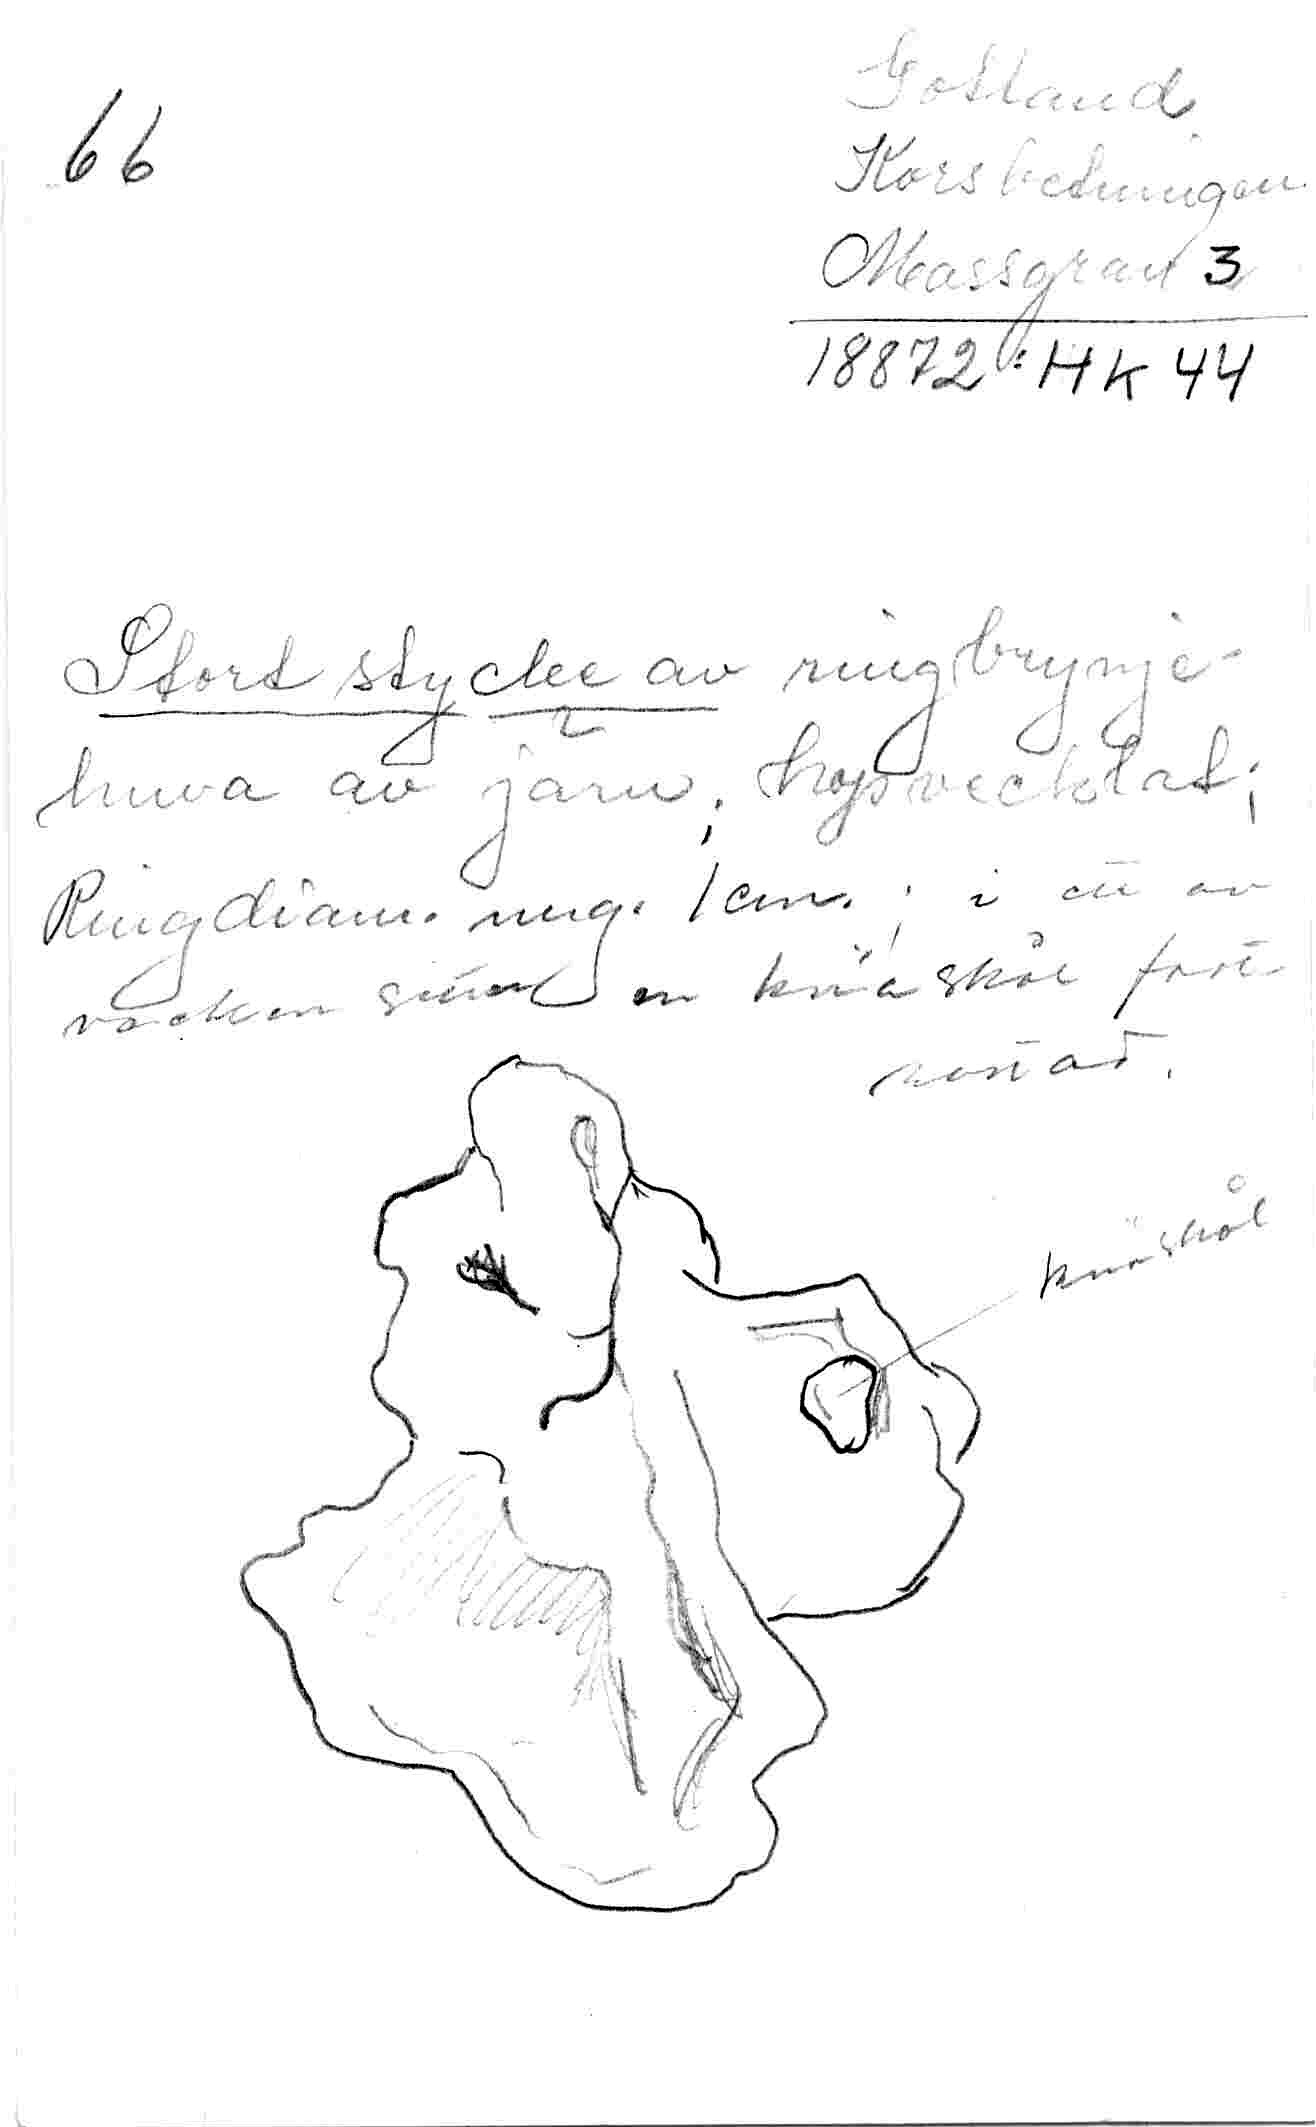 66
Gotland
Korsbetningen
Massgrav 3
18872:HK 44
Stort stycke av ringbrynje-
huva av järn; hopvecklat;
Ringdiam. ung. 1 cm.; i ett av
vecken sitter en knäskål fast
rostad.
knäskål